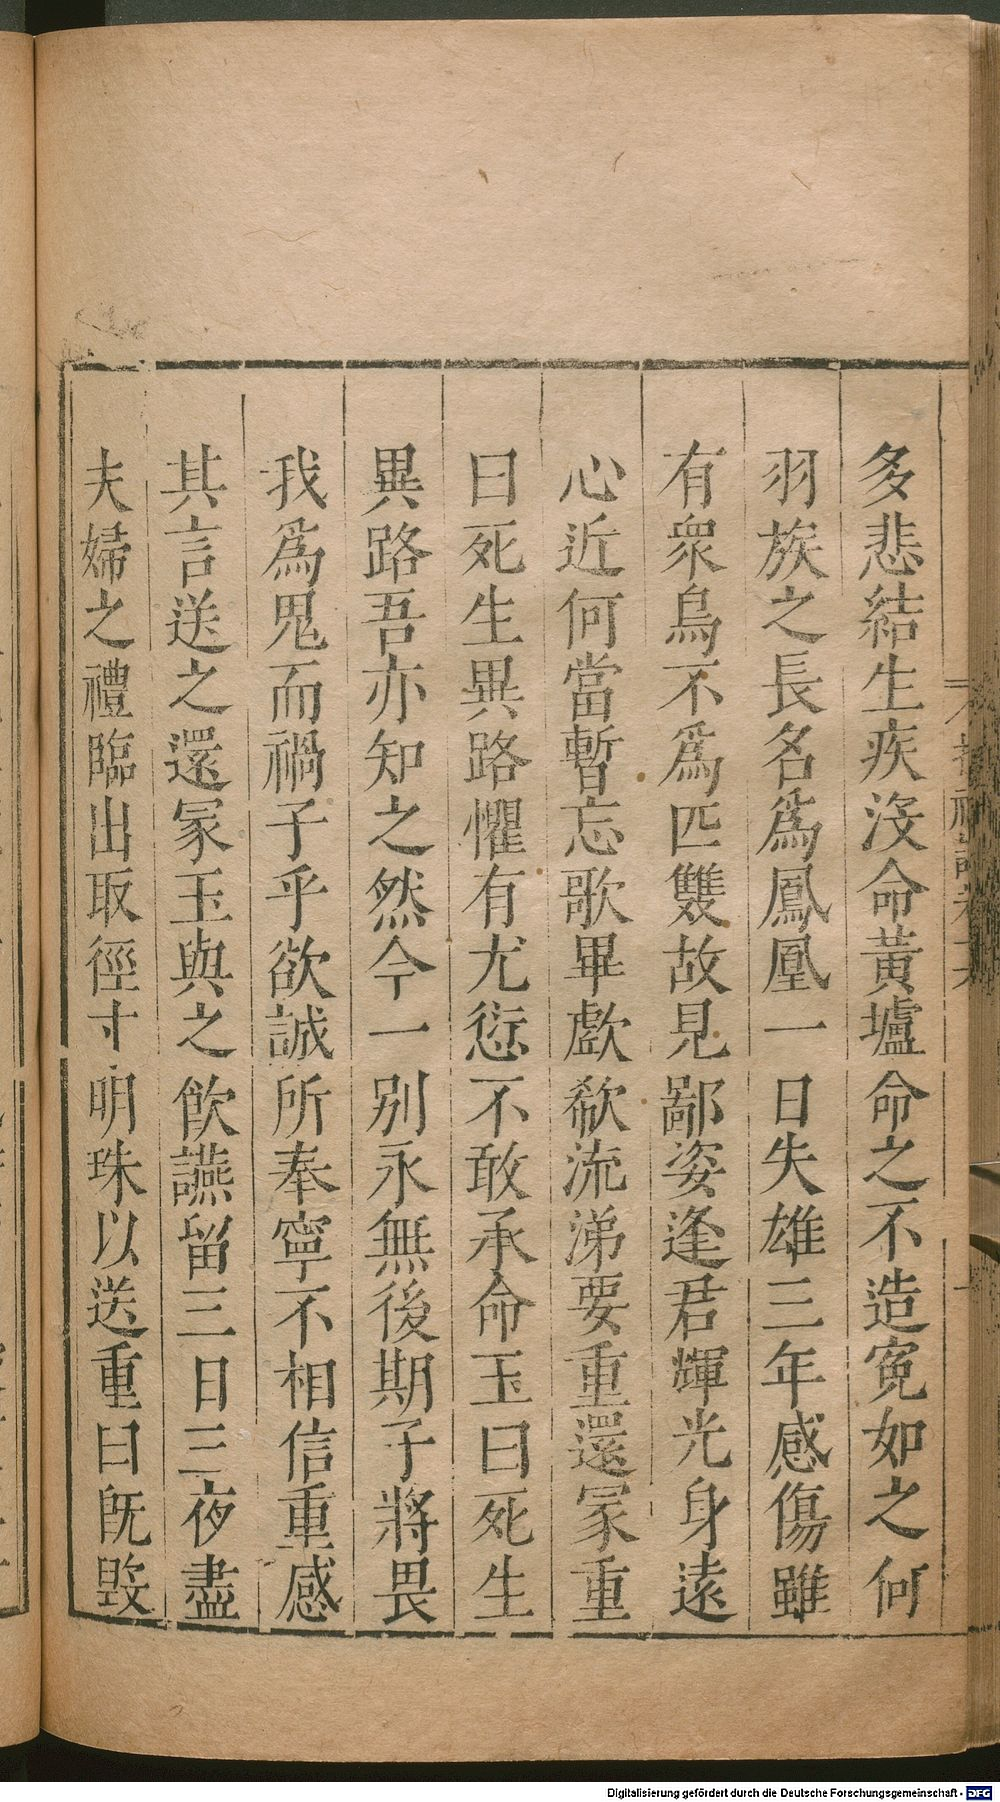 多悲結生疾沒命黃壚命之不造寃如之何
羽族之長名爲鳳凰一日失雄三年感傷雖
有衆鳥不爲匹雙故見鄙姿逢君輝光身遠
心近何當暫忘歌畢歔欷流涕要重還冢重
曰死生異路懼有尤愆不敢承命玉曰死生
異路吾亦知之然今一別永無後期子將畏
我爲鬼而禍子乎欲誠所奉寧不相信重感
其言送之還冢玉與之飮讌留三日三夜盡
夫婦之禮臨出取徑寸明珠以送重曰旣毀
Digitalisierung gefördert durch die Deutsche Forschungsgemeinschaft - DFG